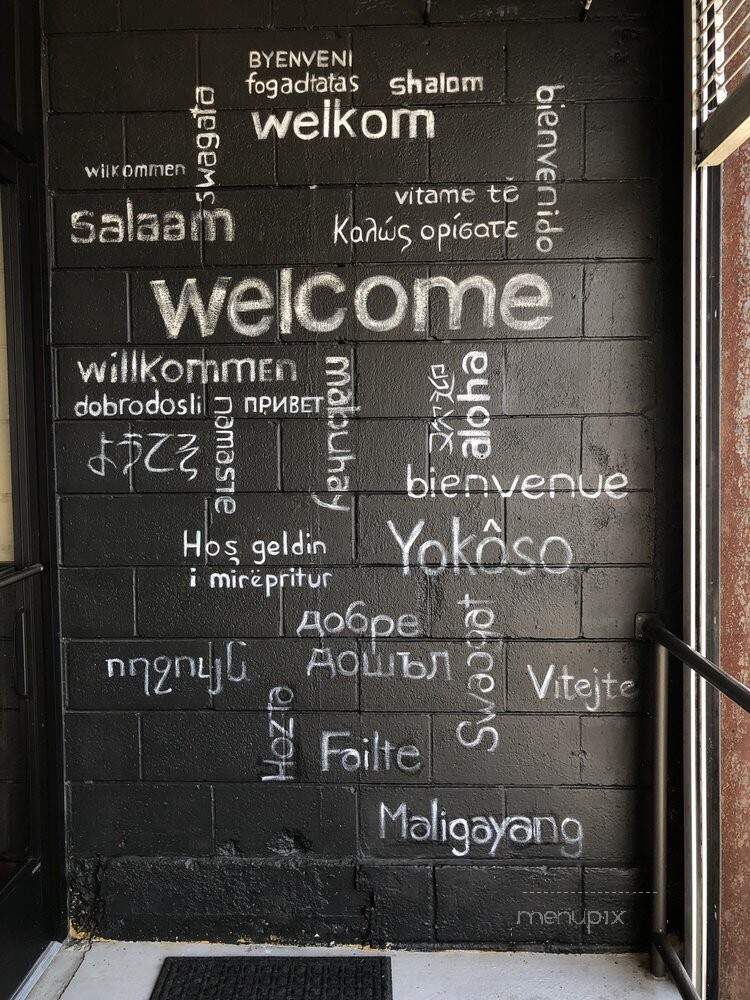 BYENVENI
fogadtatas
shalom
swagata
welkom
bienvenido
wilkommen
vitame tě
salaam
Καλώς ορίσατε
welcome
willkommen
mabuhay
aloha
dobrodosli
ПРИВЕТ
namaste
ようてそ
bienvenue
Hoş geldin
Yokôso
i mirëpritur
добре
дошъл
Swaagat
ողջույն
Vitejte
Hozia
Failte
Maligayang
menupix